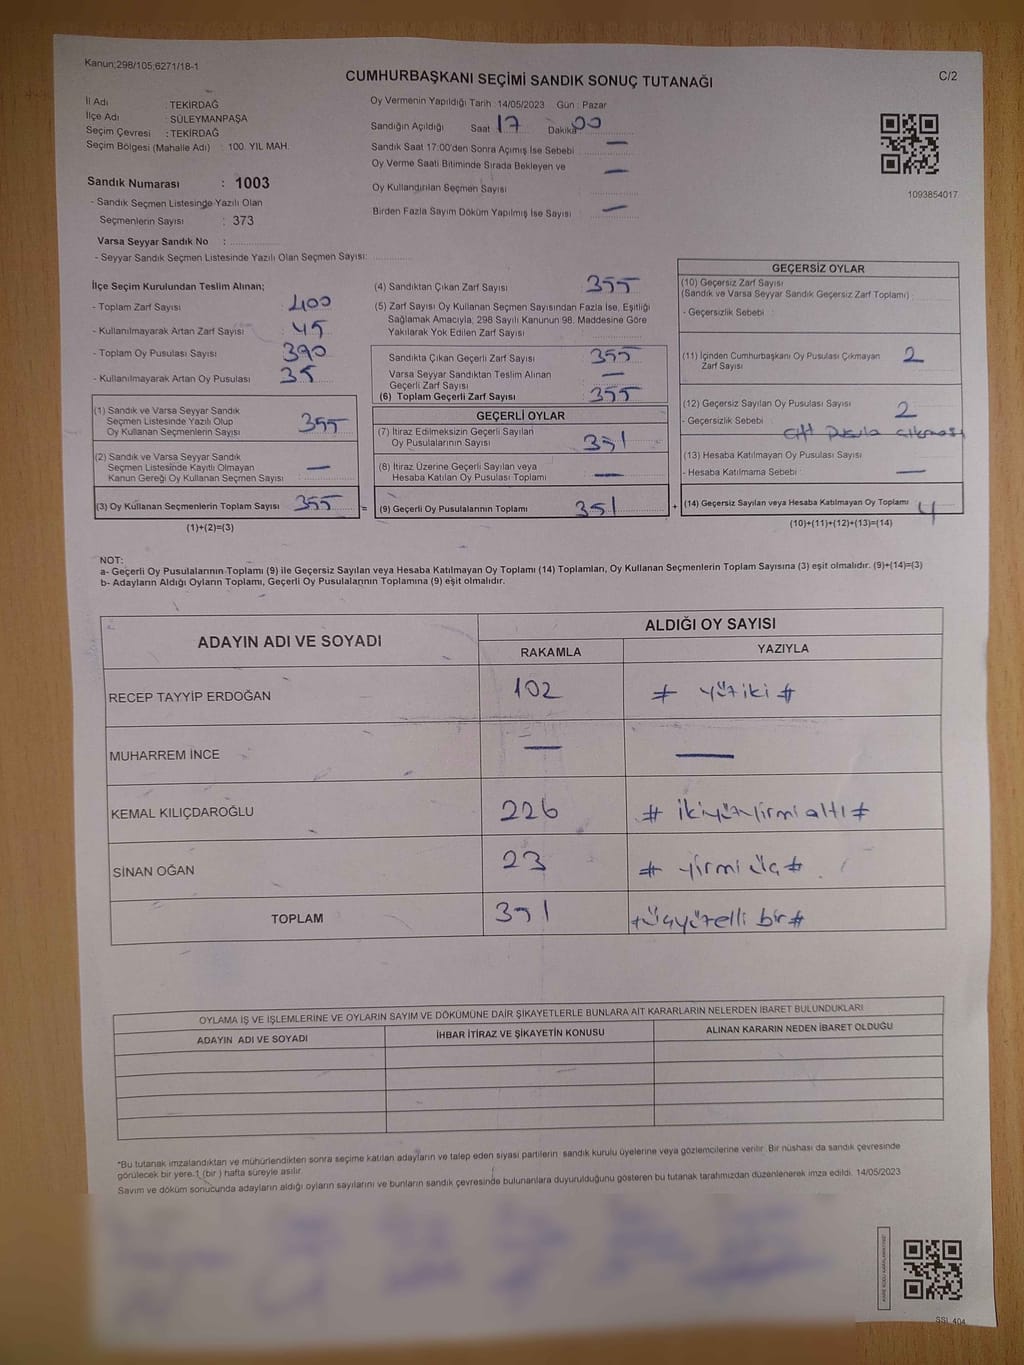 Kanun;298/105;6271/18-1
CUMHURBAŞKANI SEÇİMİ SANDIK SONUÇ TUTANAĞI
C/2
İl Adı : TEKİRDAĞ
İlçe Adı : SÜLEYMANPAŞA
Seçim Çevresi : TEKİRDAĞ
Seçim Bölgesi (Mahalle Adı) : 100. YIL MAH.
Sandık Numarası : 1003
- Sandık Seçmen Listesinde Yazılı Olan
Seçmenlerin Sayısı : 373
Varsa Seyyar Sandık No :
- Seyyar Sandık Seçmen Listesinde Yazılı Olan Seçmen Sayısı:
Oy Vermenin Yapıldığı Tarih : 14/05/2023 Gün : Pazar
Sandığın Açıldığı Saat 17 Dakika 00
Sandık Saat 17:00'den Sonra Açımış İse Sebebi —
Oy Verme Saati Bitiminde Sırada Bekleyen ve —
Oy Kullandırılan Seçmen Sayısı
Birden Fazla Sayım Döküm Yapılmış İse Sayısı —
1093854017
İlçe Seçim Kurulundan Teslim Alınan;
- Toplam Zarf Sayısı 400
- Kullanılmayarak Artan Zarf Sayısı 45
- Toplam Oy Pusulası Sayısı 390
- Kullanılmayarak Artan Oy Pusulası 35
(1) Sandık ve Varsa Seyyar Sandık
Seçmen Listesinde Yazılı Olup
Oy Kullanan Seçmenlerin Sayısı 355
(2) Sandık ve Varsa Seyyar Sandık
Seçmen Listesinde Kayıtlı Olmayan
Kanun Gereği Oy Kullanan Seçmen Sayısı —
(3) Oy Kullanan Seçmenlerin Toplam Sayısı 355 =
(1)+(2)=(3)
(4) Sandıktan Çıkan Zarf Sayısı 355
(5) Zarf Sayısı Oy Kullanan Seçmen Sayısından Fazla İse, Eşitliği
Sağlamak Amacıyla; 298 Sayılı Kanunun 98. Maddesine Göre
Yakılarak Yok Edilen Zarf Sayısı
Sandıkta Çıkan Geçerli Zarf Sayısı 355
Varsa Seyyar Sandıktan Teslim Alınan
Geçerli Zarf Sayısı —
(6) Toplam Geçerli Zarf Sayısı 355
GEÇERLİ OYLAR
(7) İtiraz Edilmeksizin Geçerli Sayılan
Oy Pusulalarının Sayısı 351
(8) İtiraz Üzerine Geçerli Sayılan veya
Hesaba Katılan Oy Pusulası Toplamı —
(9) Geçerli Oy Pusulalarının Toplamı 351 +
GEÇERSİZ OYLAR
(10) Geçersiz Zarf Sayısı
(Sandık ve Varsa Seyyar Sandık Geçersiz Zarf Toplamı) :
- Geçersizlik Sebebi :
(11) İçinden Cumhurbaşkanı Oy Pusulası Çıkmayan
Zarf Sayısı 2
(12) Geçersiz Sayılan Oy Pusulası Sayısı 2
- Geçersizlik Sebebi : çift pusula çıkması
(13) Hesaba Katılmayan Oy Pusulası Sayısı
- Hesaba Katılmama Sebebi : —
(14) Geçersiz Sayılan veya Hesaba Katılmayan Oy Toplamı 4
(10)+(11)+(12)+(13)=(14)
NOT:
a- Geçerli Oy Pusulalarının Toplamı (9) ile Geçersiz Sayılan veya Hesaba Katılmayan Oy Toplamı (14) Toplamları, Oy Kullanan Seçmenlerin Toplam Sayısına (3) eşit olmalıdır. (9)+(14)=(3)
b- Adayların Aldığı Oyların Toplamı, Geçerli Oy Pusulalarının Toplamına (9) eşit olmalıdır.
ADAYIN ADI VE SOYADI
ALDIĞI OY SAYISI
RAKAMLA YAZIYLA
RECEP TAYYİP ERDOĞAN 102 # yüziki #
MUHARREM İNCE — —
KEMAL KILIÇDAROĞLU 226 # ikiyüzyirmialtı #
SİNAN OĞAN 23 # yirmiüç #
TOPLAM 351 #üçyüzelli bir#
OYLAMA İŞ VE İŞLEMLERİNE VE OYLARIN SAYIM VE DÖKÜMÜNE DAİR ŞİKAYETLERLE BUNLARA AİT KARARLARIN NELERDEN İBARET BULUNDUKLARI
ADAYIN ADI VE SOYADI İHBAR İTİRAZ VE ŞİKAYETİN KONUSU ALINAN KARARIN NEDEN İBARET OLDUĞU
*Bu tutanak imzalandıktan ve mühürlendikten sonra seçime katılan adayların ve talep eden siyasi partilerin sandık kurulu üyelerine veya gözlemcilerine verilir. Bir nüshası da sandık çevresinde
görülecek bir yere 1 (bir ) hafta süreyle asılır.
Sayım ve döküm sonucunda adayların aldığı oyların sayılarını ve bunların sandık çevresinde bulunanlara duyurulduğunu gösteren bu tutanak tarafımızdan düzenlenerek imza edildi. 14/05/2023
SSİ_404